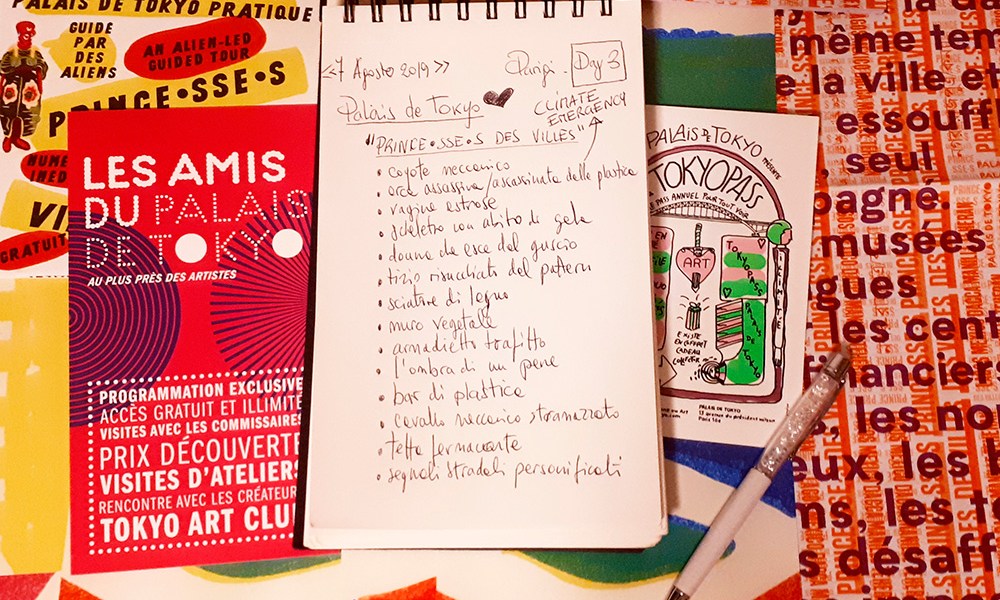 PALAIS DE TOKYO PRATIQUE
GUIDE
PAR
DES
ALIENS
AN ALIEN-LED
GUIDED TOUR
PRINCE•SSE•S
GRATUIT
LES AMIS
DU PALAIS
DE TOKYO
AU PLUS PRÈS DES ARTISTES
PROGRAMMATION EXCLUSIVE
ACCÈS GRATUIT ET ILLIMITÉ
VISITES AVEC LES COMMISSAIRES
PRIX DÉCOUVERTE
VISITES D'ATELIERS
RENCONTRE AVEC LES CRÉATEURS
TOKYO ART CLUB
<<7 Agosto 2019>>
Parigi. Day 3
Palais de Tokyo
CLIMATE
EMERGENCY
"PRINCE•SSE•S DES VILLES"
• coyote meccanico
• orca assassina/assassinata dalla plastica
• vagine estrose
• scheletro con abito di gala
• donna che esce dal guscio
• tizio risucchiato dal pattern
• sciatore di legno
• muro vegetale
• armadietto trafitto
• l'ombra di un pene
• bar di plastica
• cavallo meccanico stramazzato
• tetto
• segnali stradali personificati
PALAIS DE TOKYO
PRÉSENTE
TOKYOPASS
PASS ANNUEL POUR TOUT VOIR
ART
TOKYOPASS
PALAIS
DE
TOKYO
ILLIMITÉ
EXISTE
EN COFFRET
CADEAU
COLLECTOR
PALAIS DE TOKYO
13 avenue du président wilson
Paris 16e
même tem
e la ville et
essouffl
, seul
pagné.
musées
gues
les cent
financiers
, les no
eux, les b
ms, les t
désaff